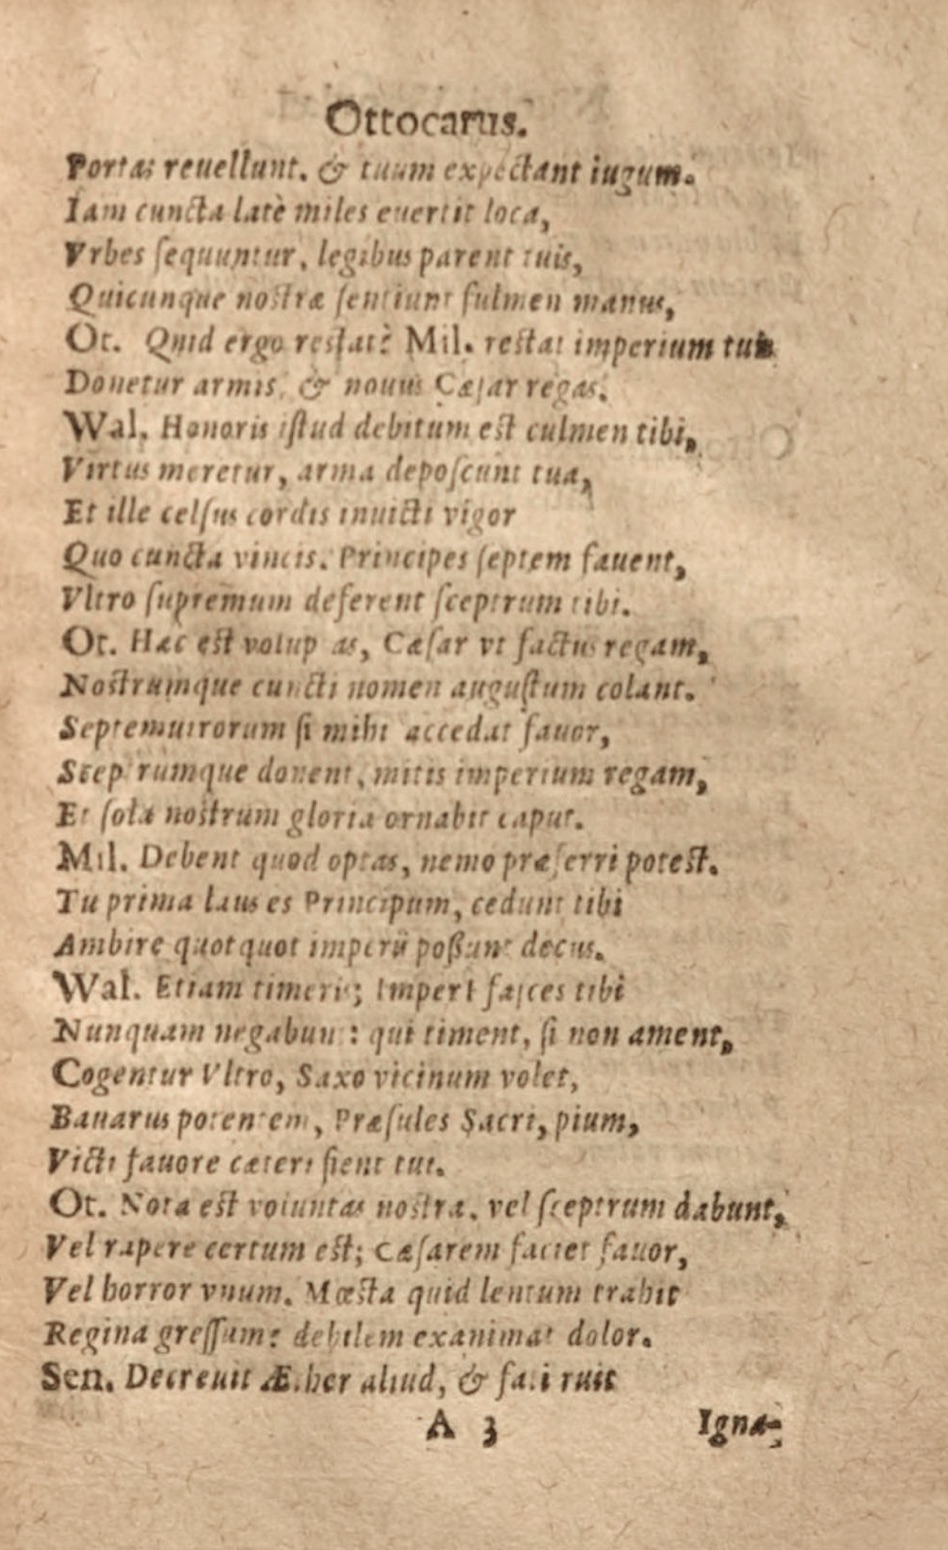 Ottocarus.
Portas reuellunt. & tuum expectant iugum.
Iam cuncta latè miles euertit loca,
Vrbes ſequuntur, legibus parent tuis,
Quicunque noſtræ ſentiunt fulmen manus,
Ot. Quid ergo reſtat? Mil. reſtat imperium tuis
Donetur armis, & nouus Cæſar regas.
Wal. Honoris iſtud debitum eſt culmen tibi,
Virtus meretur, arma depoſcunt tua,
Et ille celſus cordis inuicti vigor
Quo cuncta vincis. Principes ſeptem fauent,
Vltro ſupremum deferent ſceptrum tibi.
Ot. Hæc eſt volup as, Cæſar vt factus regam,
Noſtrumque cuncti nomen auguſtum colant.
Septemuirorum ſi mihi accedat fauor,
Scep rumque donent, mitis imperium regam,
Et ſola noſtrum gloria ornabit caput.
Mil. Debent quod optas, nemo præferri poteſt.
Tu prima laus es Principum, cedunt tibi
Ambire quotquot imperij poßunt decus.
Wal. Etiam timeris; ImperI faſces tibi
Nunquam negabun : qui timent, ſi non ament,
Cogentur Vltro, Saxo vicinum volet,
Bauarus potentem, Præſules Sacri, pium,
Victi fauore cæteri fient tui.
Ot. Nota eſt voluntas noſtra. vel ſceptrum dabunt,
Vel rapere certum eſt; Cæſarem faciet fauor,
Vel horror vnum. Mœſta quid lentum trahit
Regina greſſum? debilem exanimat dolor.
Sen. Decreuit Æther aliud, & fati ruit
A 3 Igna-